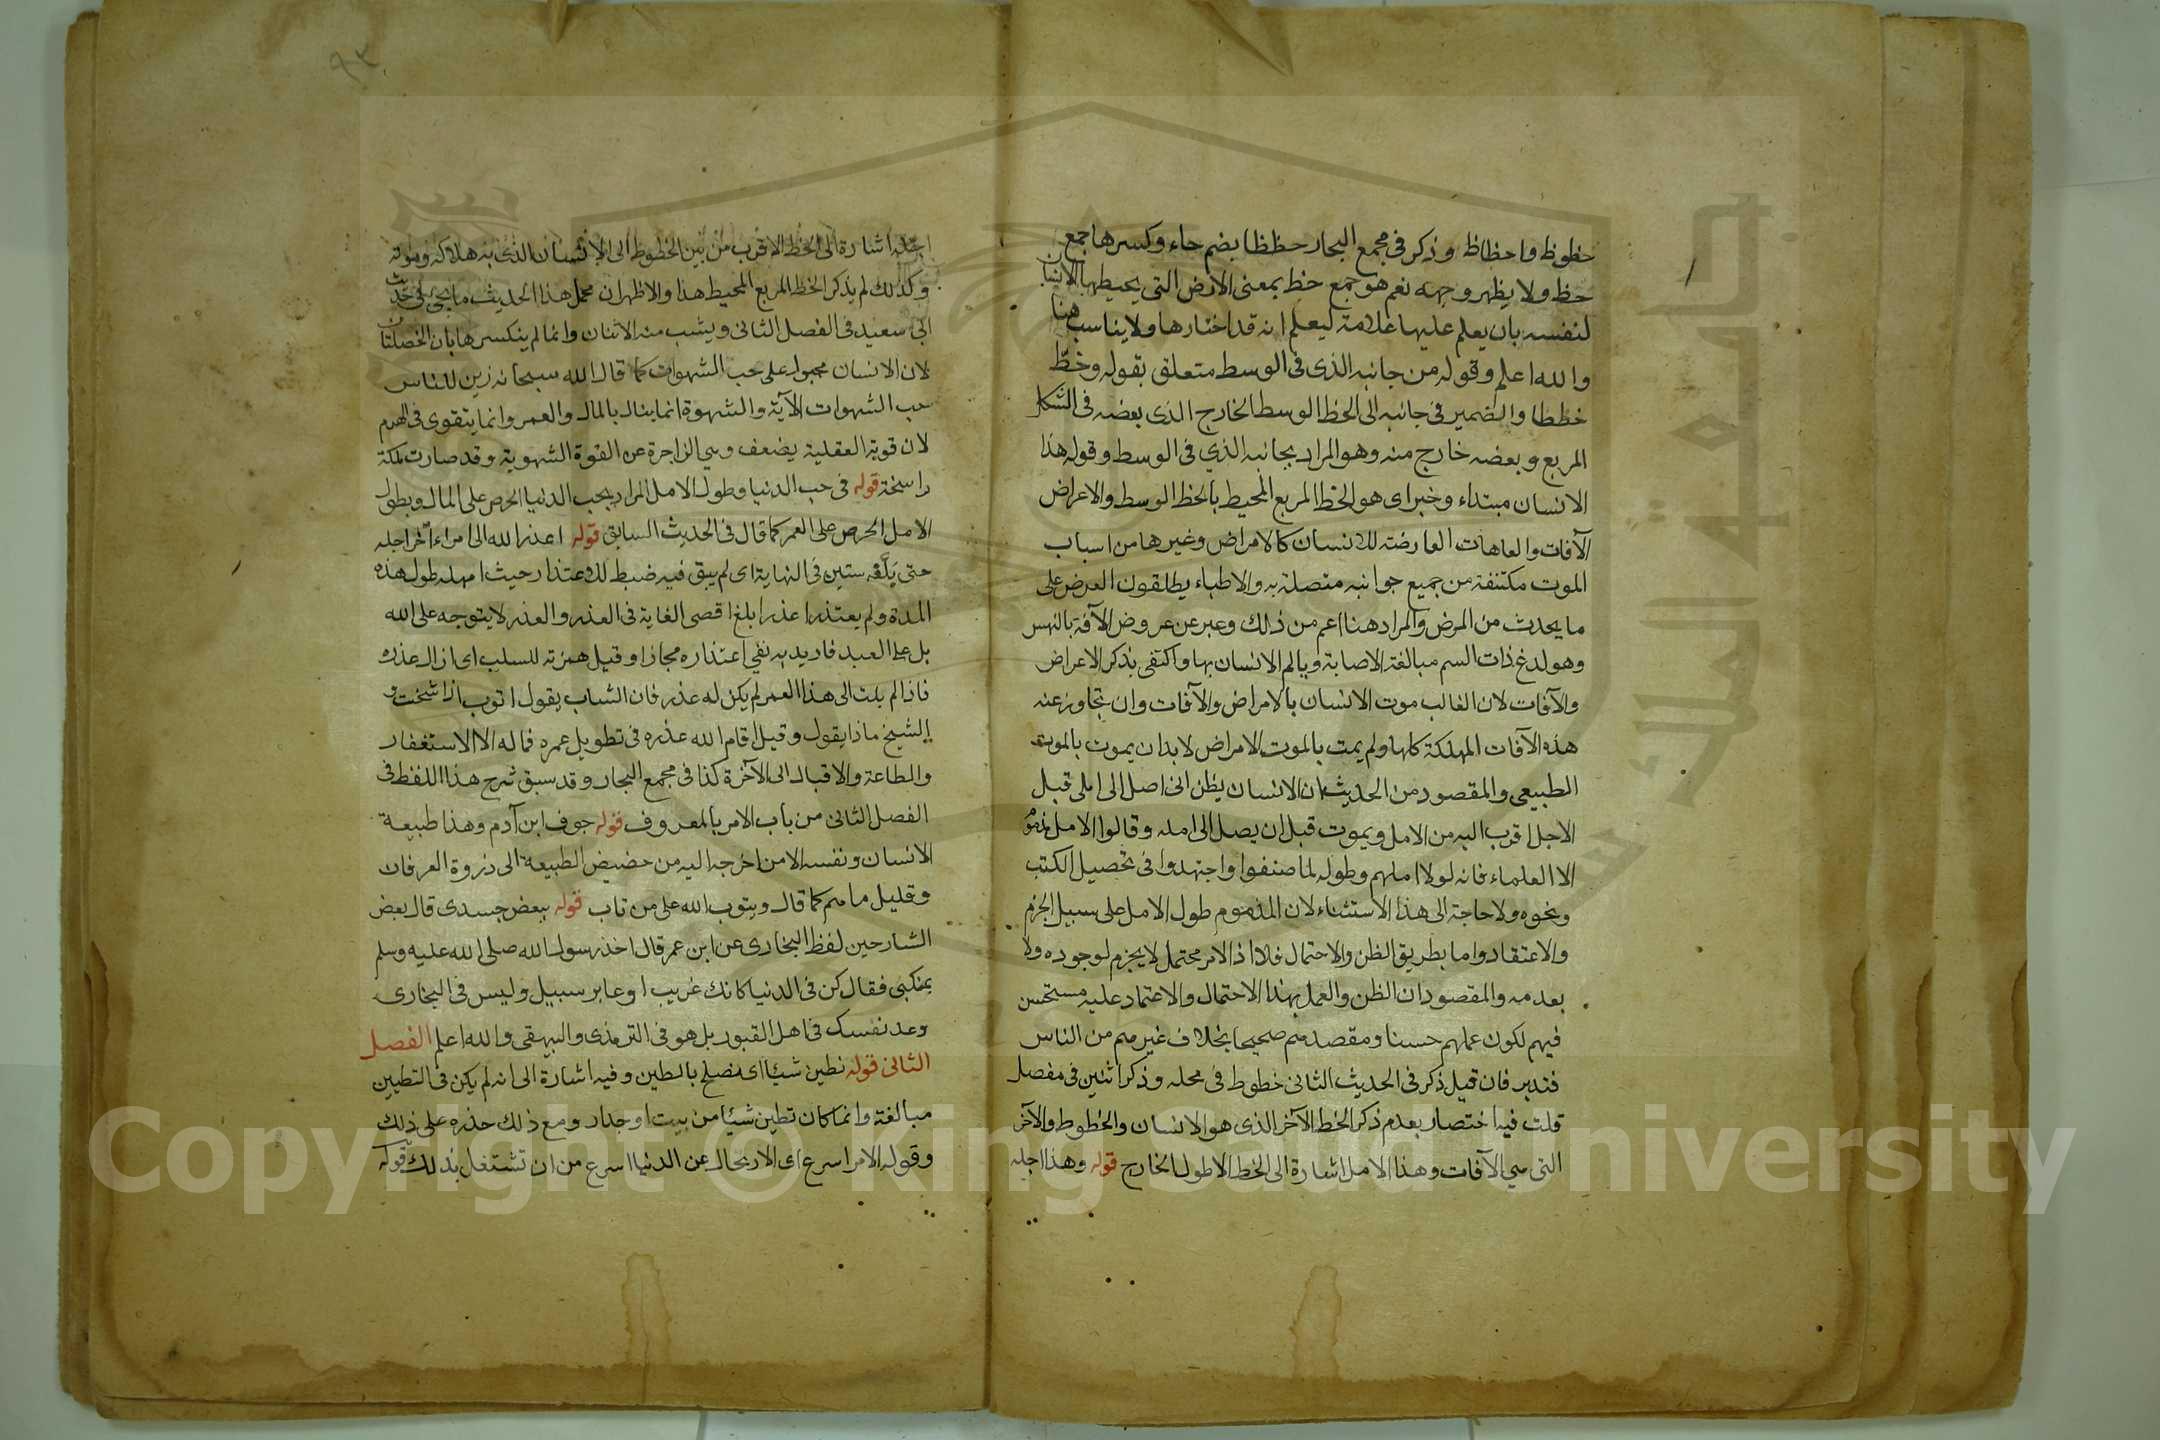 حظوظ واحظاظ وذكر في مجمع البحار حظظا بضم حاء وكسرها جمع
حظ ولا يظهر وجهه نعم هو جمع خط بمعنى الارض التي يحيطها الانسان
لنفسه بان يعلم عليها علامة ليعلم انه قد اختارها ولا يناسب هنا
والله اعلم وقوله من جانبه الذى فى الوسط متعلق بقوله وخطّ
خططا والضمير في جانبه الى الخط الوسط الخارج الذى بعضه فى الشكل
المربع وبعضه خارج منه وهو المراد بجانبه الذي فى الوسط وقوله هذا
الانسان مبتداء وخبر اى هو الخط المربع المحيط بالخط الوسط والاعراض
الآفات والعاهات العارضة للانسان كالامراض وغيرها من اسباب
الموت مكتنفة من جميع جوانبه متصلة به والاطباء يطلقون العرض على
ما يحدث من المرض والمراد هنا اعم من ذلك وعبر عن عروض الآفة بالنهس
وهو لدغ ذات السم مبالغة الاصابة ويالم الانسان بها واكتفى بذكر الاعراض
والآفات لان الغالب موت الانسان بالامراض والآفات وان تجاوز عنه
هذه الآفات المهلكة كلها ولم يمت بالموت الامراض لابد ان يموت بالموت
الطبيعي والمقصود من الحديث ان الانسان يظن انى اصل الى املى قبل
الاجل اقرب اليه من الامل ويموت قبل ان يصل الى امله وقالوا الامل مذموم
الا العلماء فانه لولا املهم وطوله لما صنفوا واجتهدوا فى تحصيل الكتب
ونحوه ولا حاجة الى هذا الاستثناء لان المذموم طول الامل على سبيل الجزم
والاعتقاد واما بطريق الظن والاحتمال فلا اذ الامر محتمل لا يجزم لوجوده ولا
بعدمه والمقصود ان الظن والعمل بهذا الاحتمال والاعتماد عليه مستحسن
فيهم لكون عملهم حسنا ومقصدهم صحيحا بخلاف غيرهم من الناس
فتدبر فان قيل ذكر فى الحديث الثانى خطوط فى محله وذكر اثنين فى مفصل
قلت فيه اختصار بعدم ذكر الخط الآخر الذى هو الانسان والخطوط والآخر
التى هي الآفات وهذا الامل اشارة الى الخط الاطول الخارج قوله وهذا اجله
اجله اشارة الى الخط الاقرب من بين الخطوط الى الانسان الذى به هلاكه وموته
وكذلك لم يذكر الخط المربع المحيط هذا والاظهر ان محمل هذا الحديث ما يجئ في حديث
ابى سعيد فى الفصل الثانى ويشب منه الاثنان وانما لم ينكسر هابان الخصلتان
لان الانسان مجبول على حب الشهوات كما قال الله سبحانه زين للناس
حب الشهوات الآية والشهوة انما ينال بالمال والعمر وانما يتقوى فى الهرم
لان قوته العقلية يضعف وهي الزاجرة عن القوة الشهوية وقد صارت ملكة
راسخة قوله فى حب الدنيا وطول الامل المراد بحب الدنيا الحرص على المال وبطول
الامل الحرص على العمر كما قال فى الحديث السابق قوله اعذر الله الى امراء اخر اجله
حتى بلّغه ستين فى النهاية اى لم يبق فيه ضبط للاعتذار حيث امهله طول هذه
المدة ولم يعتذر اعذر ابلغ اقصى الغاية فى العذر والعذر لا يتوجه على الله
بل على العبد فاريد به نفي اعتذاره مجازا وقيل همزته للسلب اى ازال عذره
فاذا لم يلت الى هذا العمر لم يكن له عذر فان الشاب يقول اتوب اذا شخت و
الشيخ ماذا يقول وقيل اقام الله عذره فى تطويل عمره فماله الا الاستغفار
والطاعة والاقبال الى الآخرة كذا فى مجمع البحار وقد سبق شرح هذا اللفظ فى
الفصل الثانى من باب الامر بالمعروف قوله جوف ابن آدم وهذا طبيعة
الانسان ونفسه الا من اخرجه اليه من حضيض الطبيعة الى ذروة العرفان
وقليل ما هم كما قال ويتوب الله على من تاب قوله ببعض جسدى قال بعض
الشارحين لفظ البخارى عن ابن عمر قال اخذ رسول الله صلى الله عليه وسلم
بمنكبي فقال كن فى الدنيا كانك غريب او عابر سبيل وليس فى البخارى
وعد نفسك فى اهل القبور بل هو فى الترمذى والبيهقى والله اعلم الفصل
الثانى قوله نطين شيئا اى نصلح بالطين وفيه اشارة الى انه لم يكن فى التطيين
مبالغة وانما كان تطين شيئا من بيت او جدار ومع ذلك حذره على ذلك
وقوله الامر اسرع اى الارتحال عن الدنيا اسرع من ان تشتغل بذلك قوله
Copyright © King Saud University